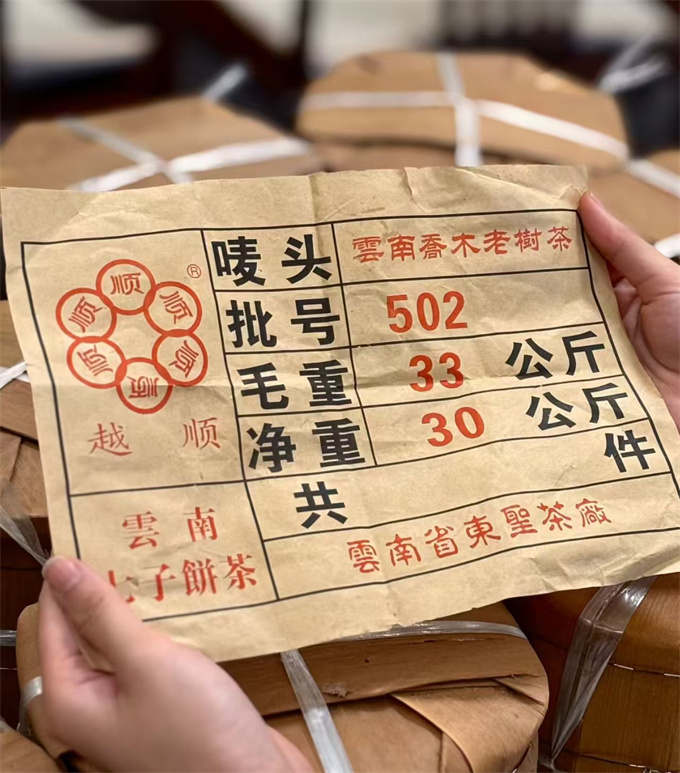 顺
顺
顺
顺
顺
顺
®
越 顺
唛头 雲南喬木老樹茶
批号 502
毛重 33 公斤
净重 30 公斤
共 件
雲南
七子餅茶
雲南省東聖茶廠